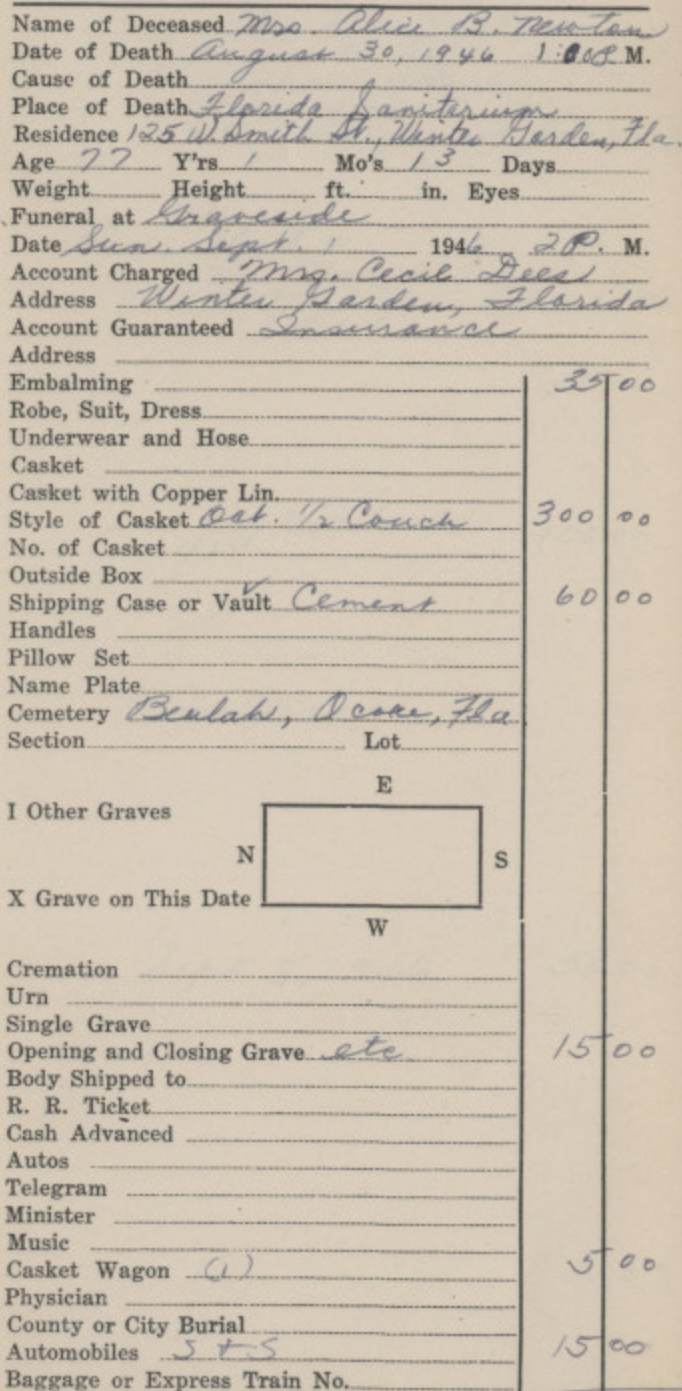 Name of Deceased Mrs. Alice B. Newton
Date of Death August 30, 1946 1:00 P M.
Cause of Death
Place of Death Florida Sanitarium
Residence 125 W. Smith St., Winter Garden, Fla.
Age 77 Y'rs 1 Mo's 13 Days
Weight Height ft. in. Eyes
Funeral at Graveside
Date Sun. Sept. 1 1946 2 P. M.
Account Charged Mrs. Cecil Dees
Address Winter Garden, Florida
Account Guaranteed Insurance
Address
Embalming 35 00
Robe, Suit, Dress
Underwear and Hose
Casket
Casket with Copper Lin.
Style of Casket Oct. 1/2 Couch 300 00
No. of Casket
Outside Box
Shipping Case or Vault Cement 60 00
Handles
Pillow Set
Name Plate
Cemetery Beulah, Ocoee, Fla
Section Lot
E
I Other Graves
N S
X Grave on This Date
W
Cremation
Urn
Single Grave
Opening and Closing Grave etc 15 00
Body Shipped to
R. R. Ticket
Cash Advanced
Autos
Telegram
Minister
Music
Casket Wagon (1) 5 00
Physician
County or City Burial
Automobiles S + S 15 00
Baggage or Express Train No.